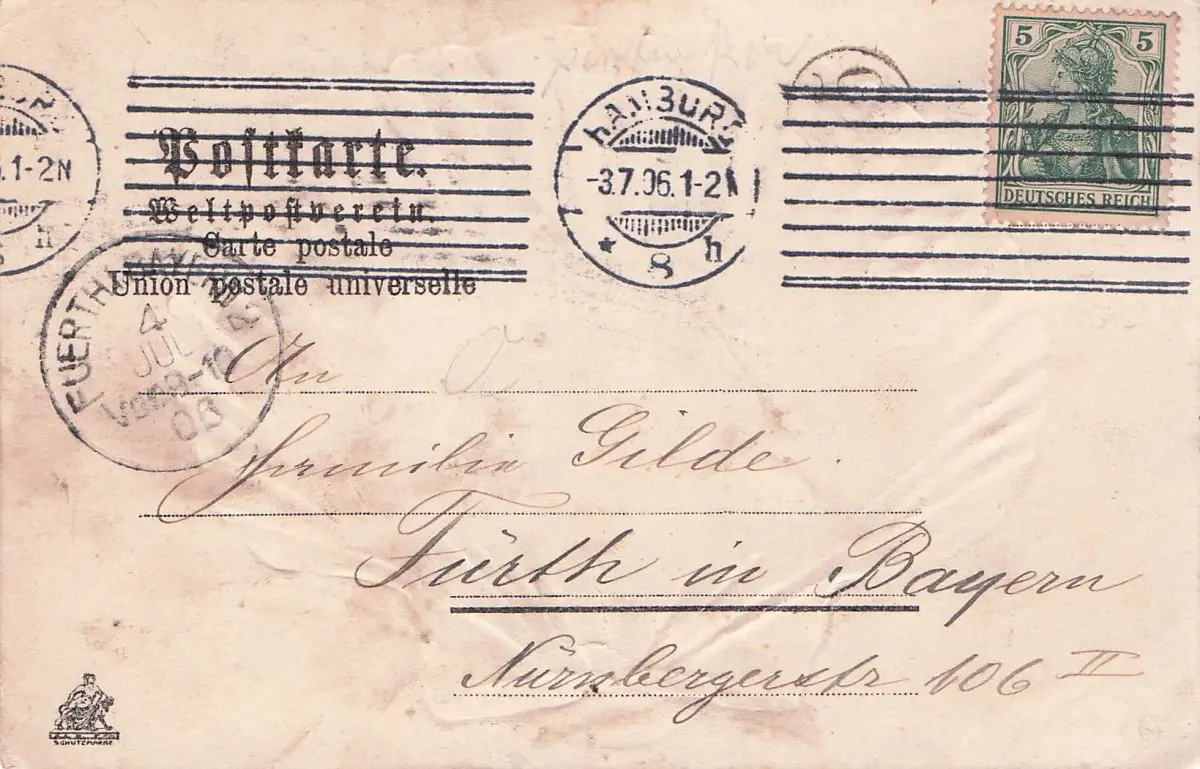 5 5
DEUTSCHES REICH
HAMBURG
-3.7.06.1-2N
* 8 h
.1-2N
h
Postkarte.
Weltpostverein.
Carte postale
Union postale universelle
FUERTH
4
JUL
06
An
Familie Gilde.
Fürth in Bayern
Nürnbergerstr 106 II
SCHUTZMARKE